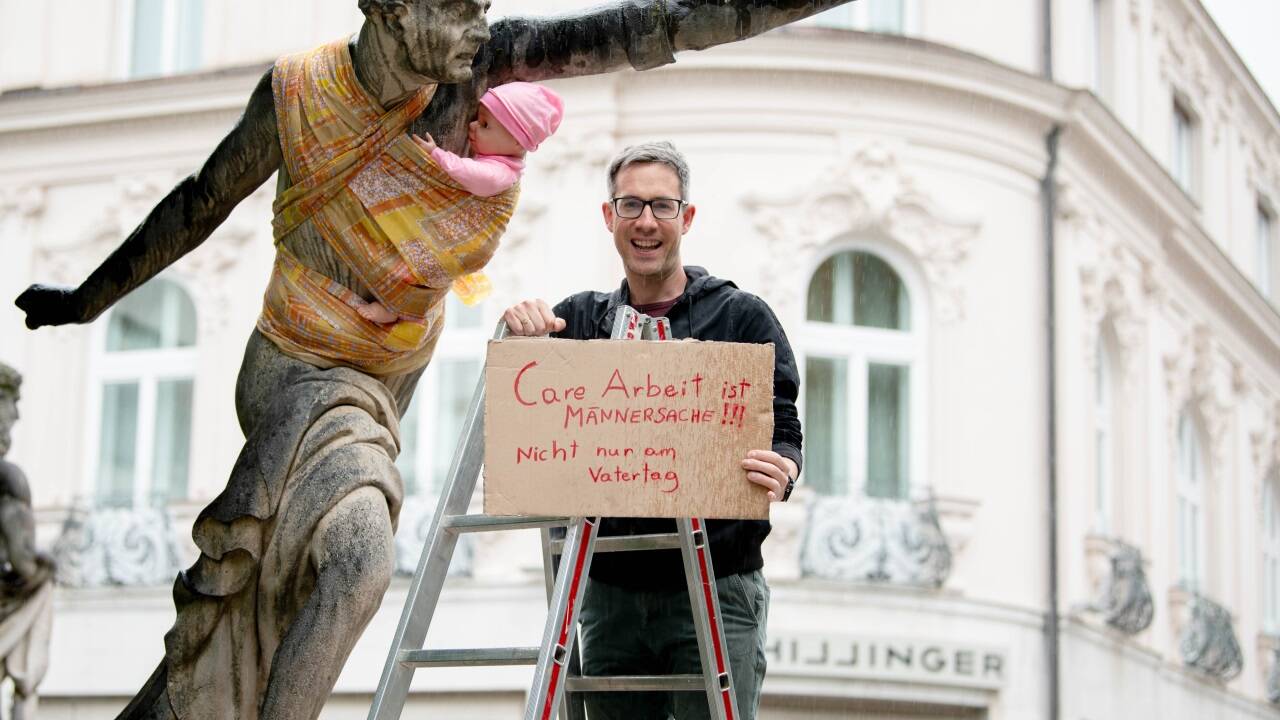 Care Arbeit ist
MÄNNERSACHE!!!
Nicht nur am
Vatertag
HILLINGER